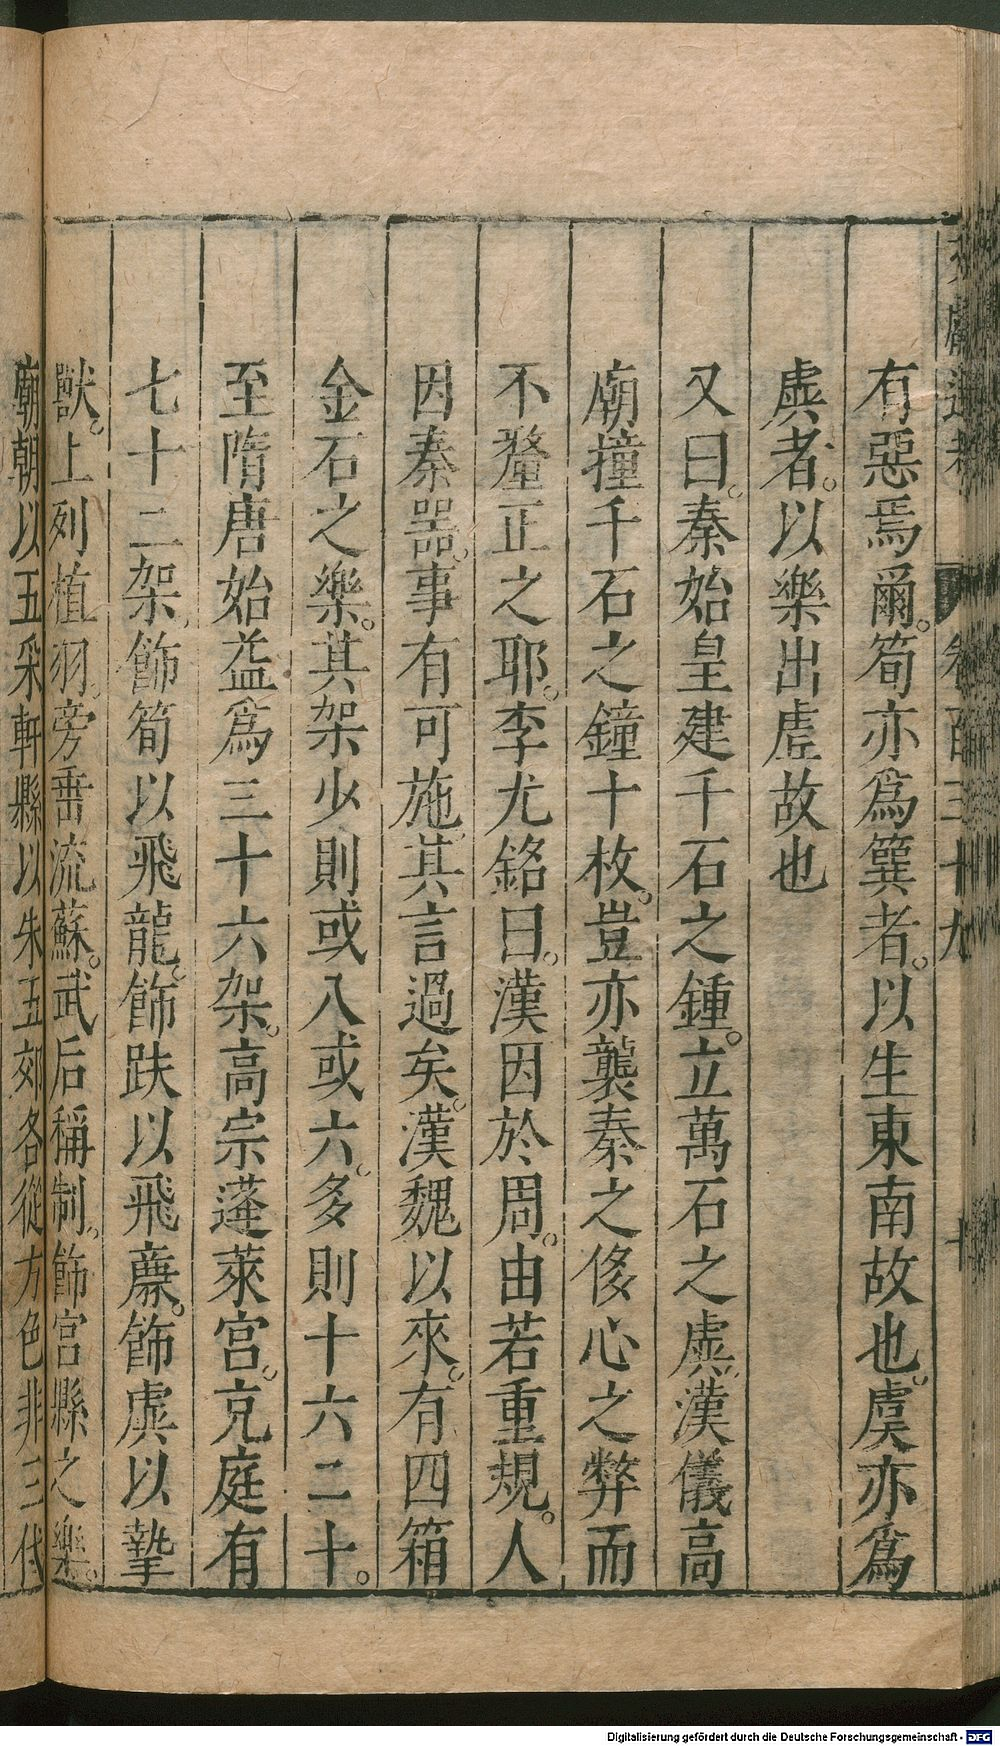 文獻通考 卷百三十九 十
有惡焉爾。筍亦為簨者。以生東南故也。虡亦為
虡者。以樂出虛故也
又曰。秦始皇建千石之鍾。立萬石之虡。漢儀高
廟撞千石之鐘十枚。豈亦襲秦之侈心之弊而
不釐正之耶。李尤銘曰。漢因於周。由若重規。人
因秦器。事有可施。其言過矣。漢魏以來。有四箱
金石之樂。其架少則或八或六。多則十六二十。
至隋唐始益為三十六架。高宗蓬萊宮。充庭有
七十二架。飾筍以飛龍。飾趺以飛廉。飾虡以摯
獸。上列植羽。旁垂流蘇。武后稱制。飾宮縣之樂。
廟朝以五采軒縣以朱五郊各從方色非三代
Digitalisierung gefördert durch die Deutsche Forschungsgemeinschaft - DFG